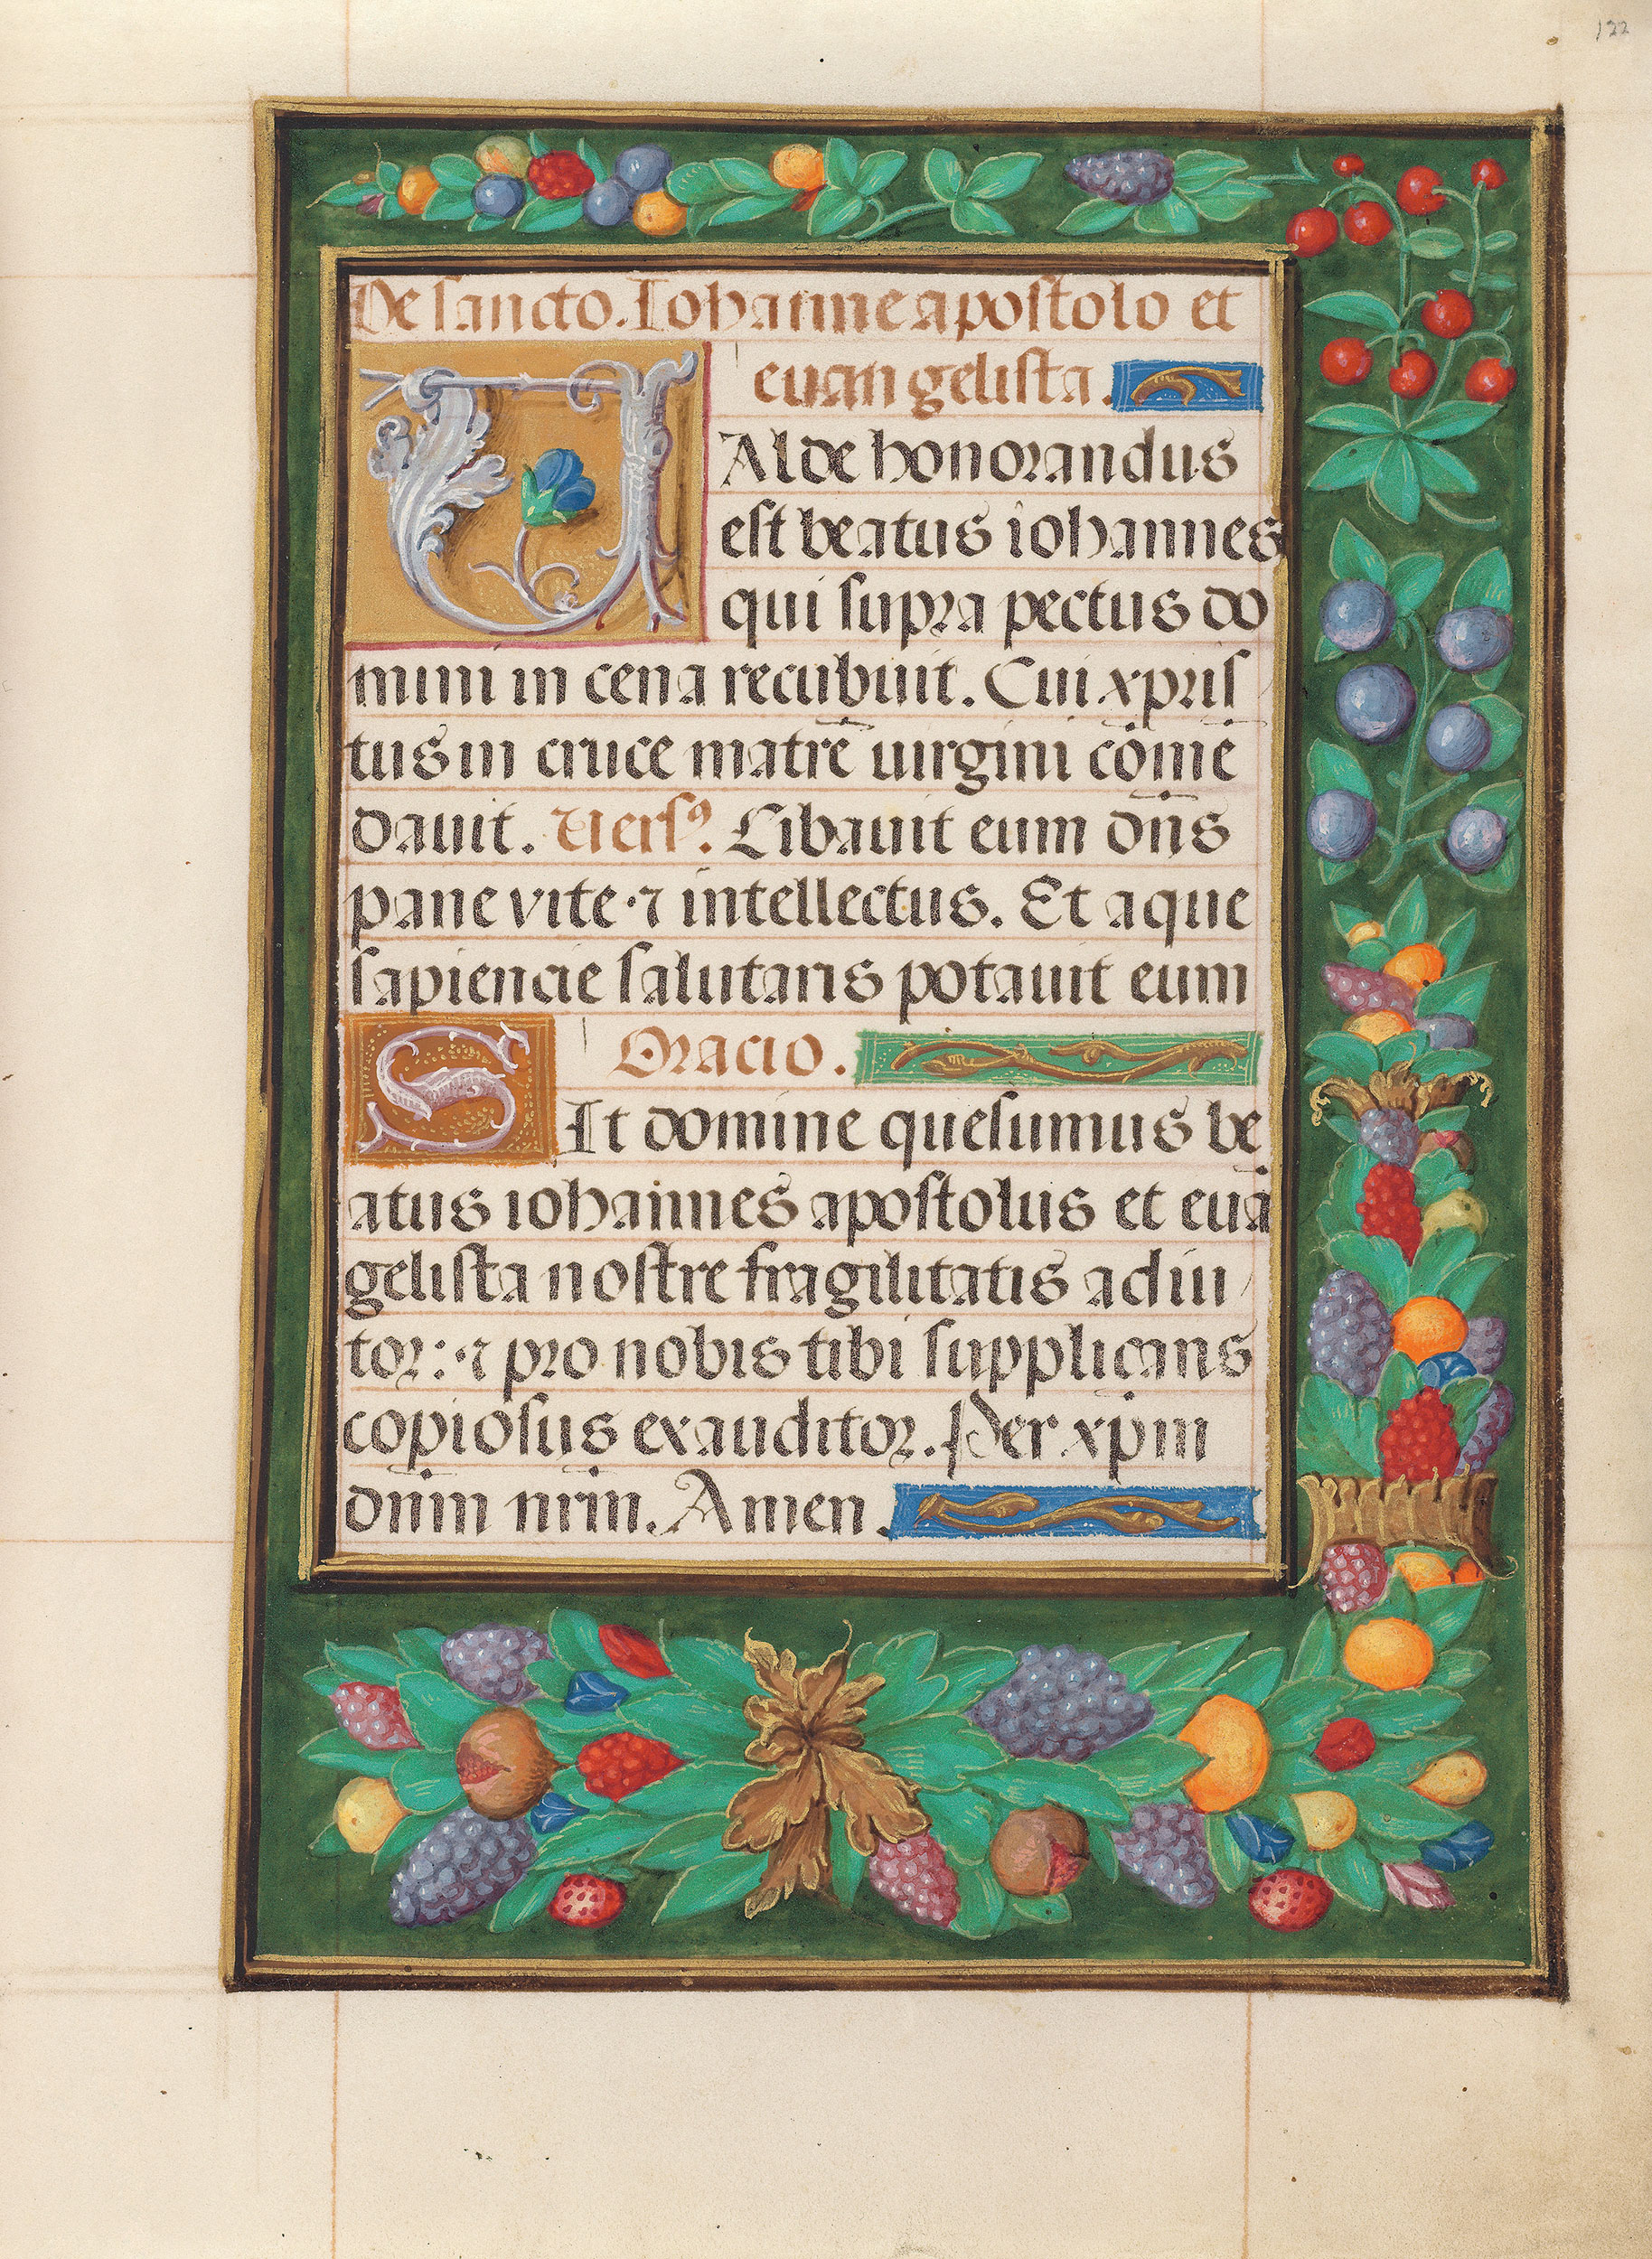 122
De sancto. Iohanne apostolo et
euangelista.
VAlde honorandus
est beatus iohannes
qui supra pectus do
mini in cena recubuit. Cui xpris
tus in cruce matrē uirgini cōmē
dauit. Versꝰ. Cibauit eum dn̄s
pane vite ⁊ intellectus. Et aque
sapiencie salutaris potauit eum
Oracio.
SIt domine quesumus be
atus iohannes apostolus et euā
gelista nostre fragilitatis adiu
tor: ⁊ pro nobis tibi supplicans
copiosus exauditor. Per xp̄m
dn̄m nr̄m. Amen.